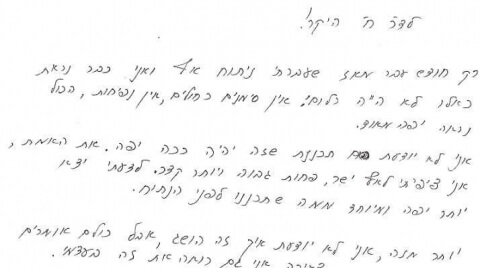 לדר' ח' היקר!
רק חודש עבר מאז שעברתי ניתוח אף ואני כבר נראת
כאלו לא היה כלום! אין סימנים כחולים, אין נפיחות, הכול
נראה יפה מאוד.
אני לא יודעת תכננת שזה יהיה ככה יפה. את האמת,
אני ציפיתי לאף ישר, פחות גבוה ויותר קצר. לדעתי יצא
יותר יפה ומיוחד ממה שתכננו לפני הניתוח.
יותר מזה, אני לא יודעת איך זה הושג, אבל כולם אומרים
אני גם רואה את זה בעצמי.